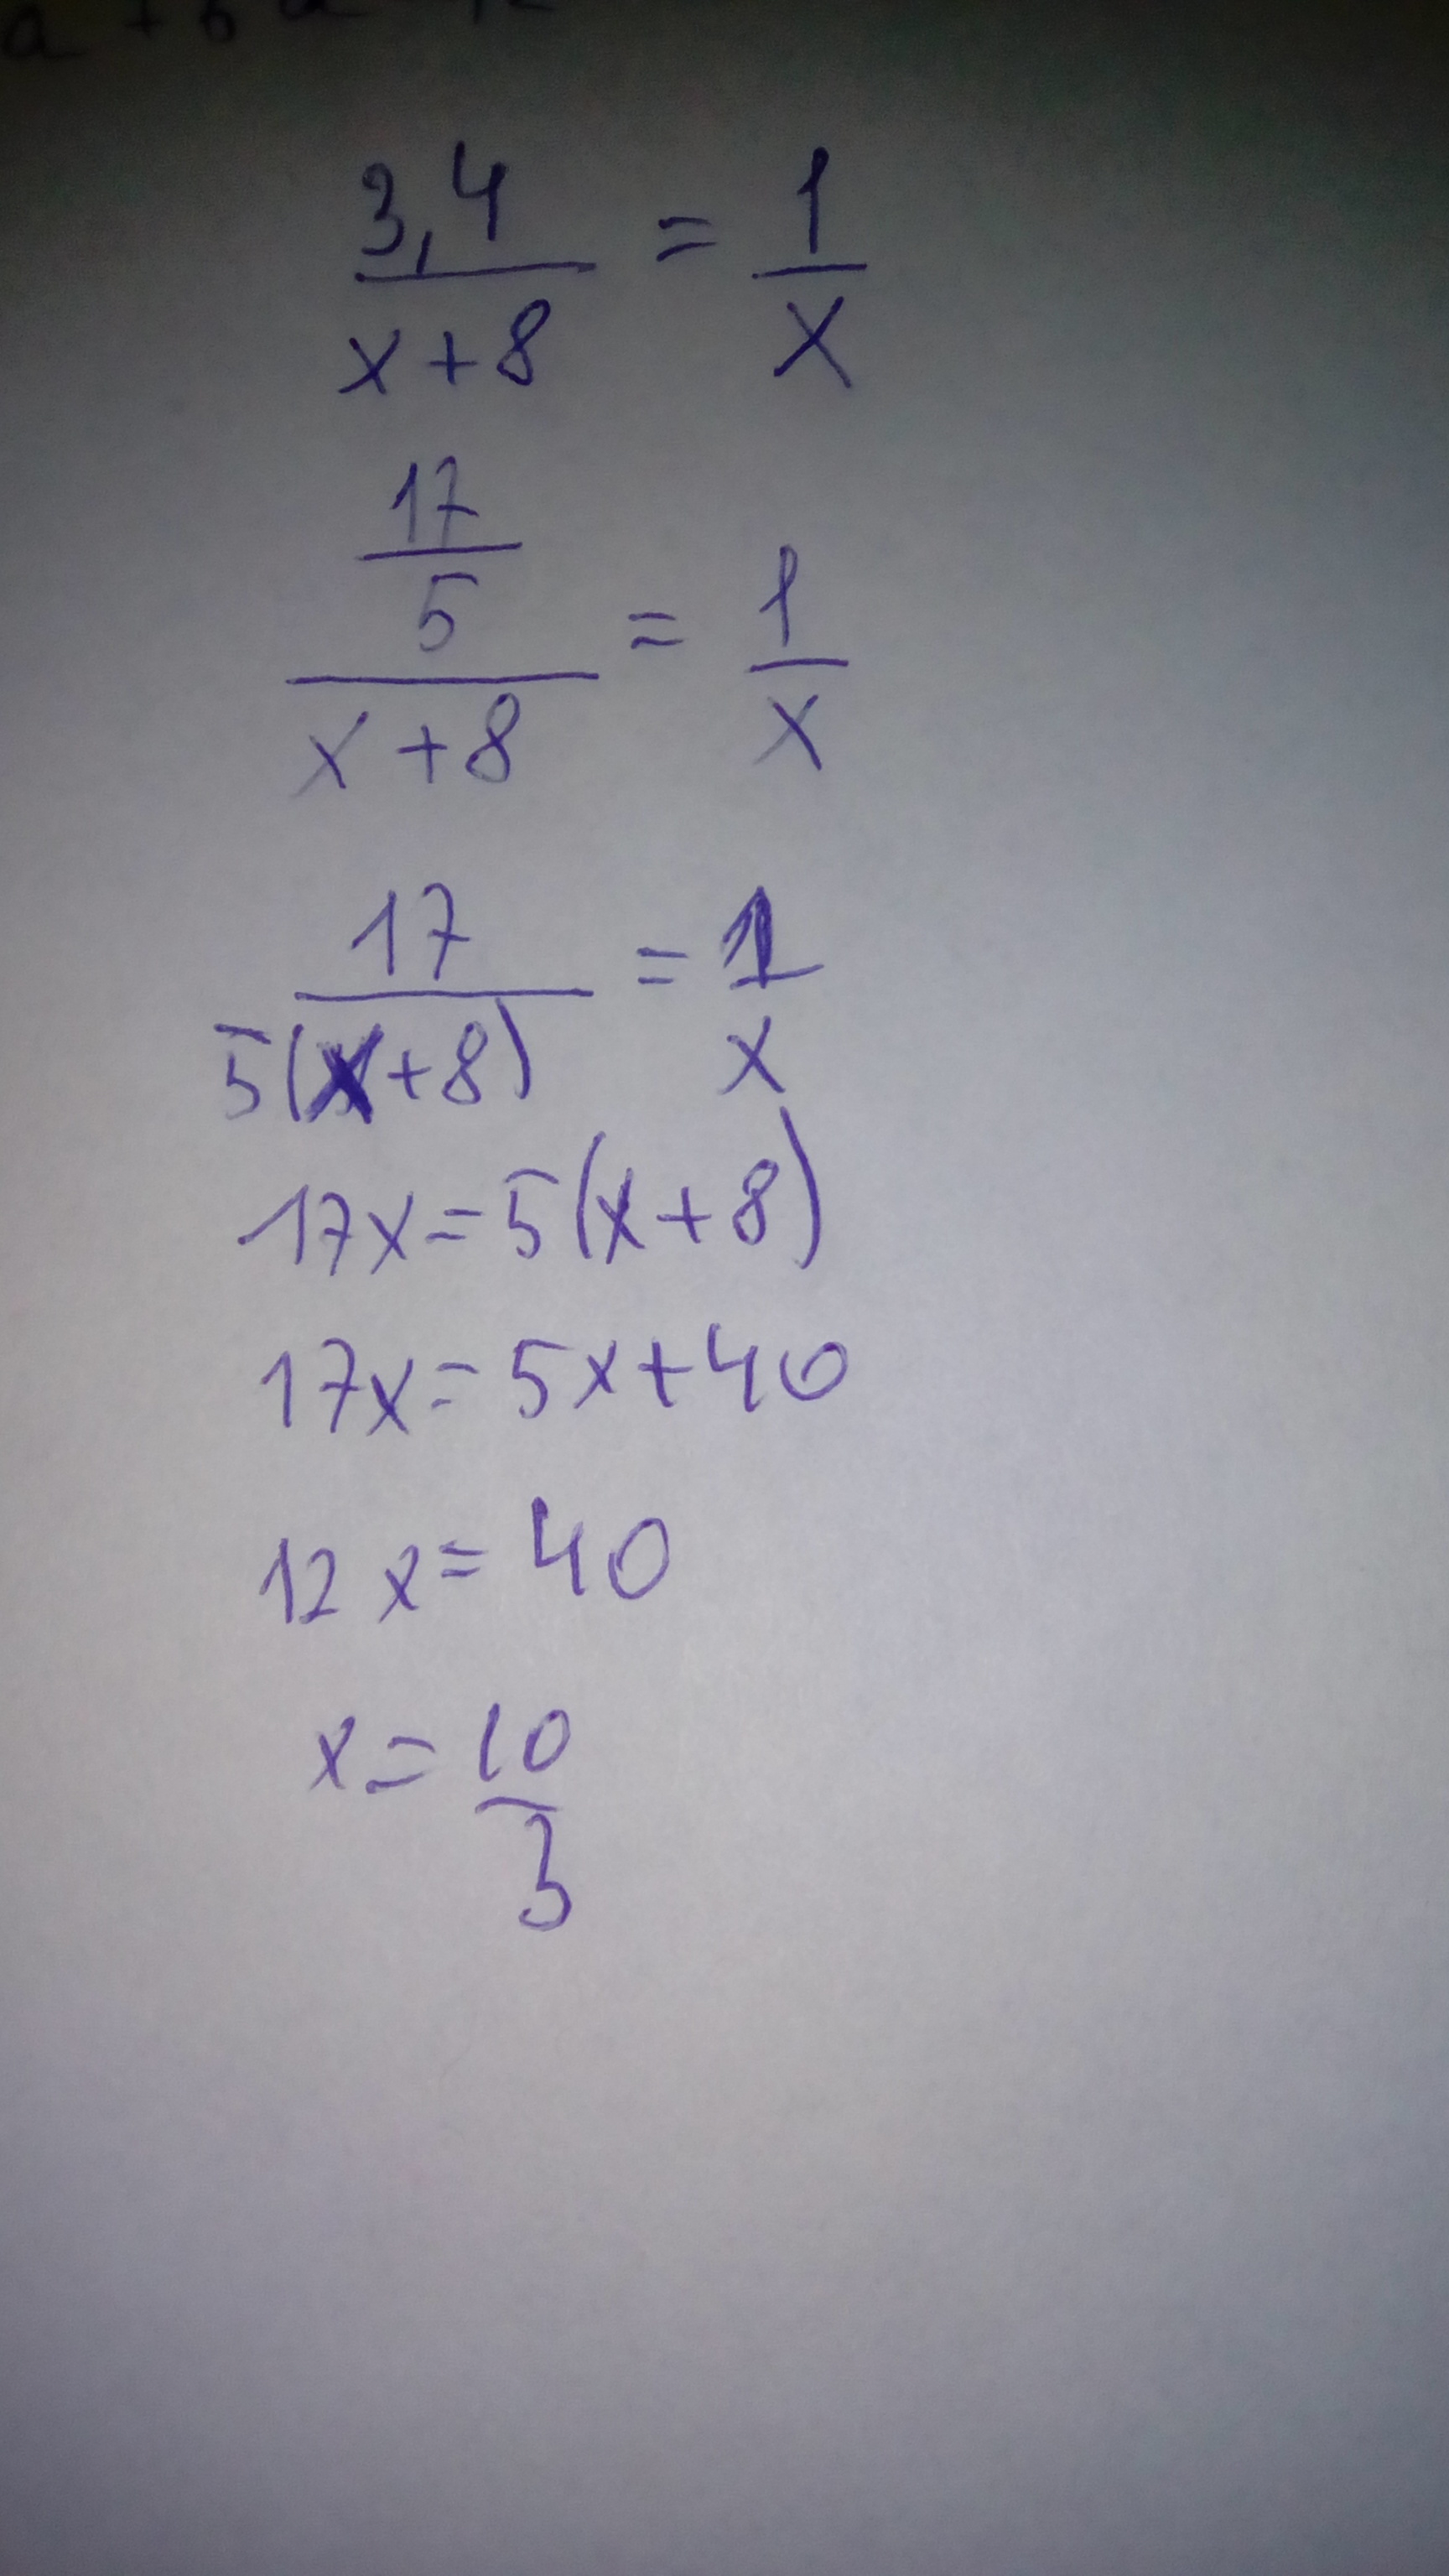 3,4/(x+8) = 1/x
(17/5)/(x+8) = 1/x
17/(5(x+8)) = 1/x
17x=5(x+8)
17x=5x+40
12x=40
x=10/3